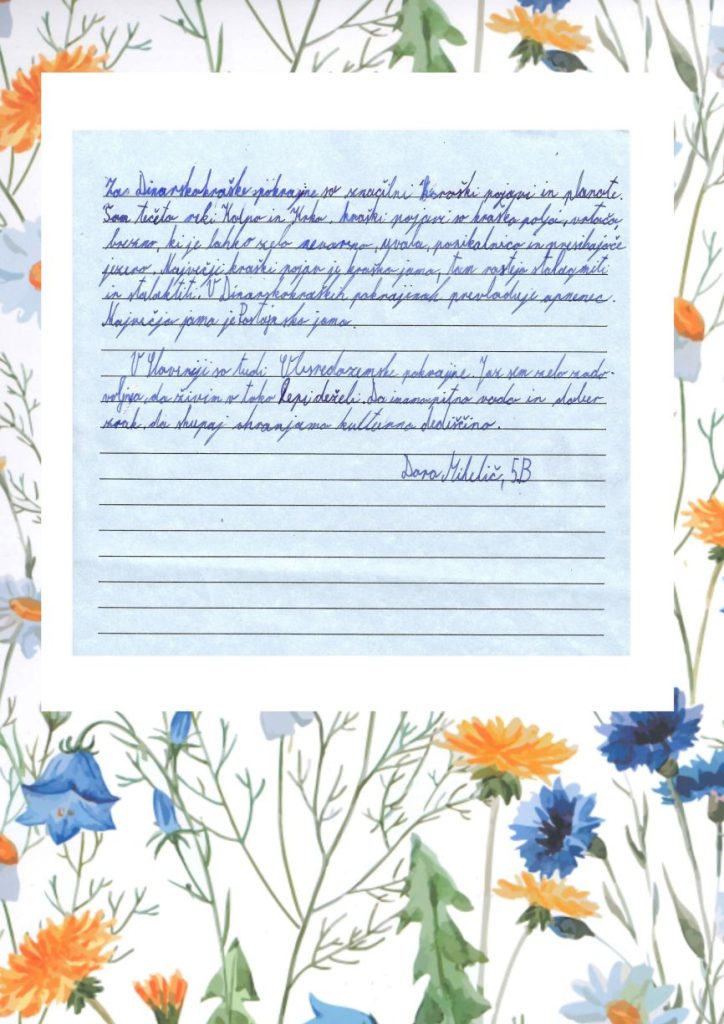 Za Dinarskokraške pokrajine so značilni kraški pojavi in planote.
Tam tečeta reki Kolpa in Krka. kraški pojavi so kraško polje, vrtača,
brezno, ki je lahko zelo nevarno, uvala, ponikalnica in presihajoče
jezero. Največji kraški pojav je kraška jama, tam rastejo stalagmiti
in stalaktiti. V Dinarskokraških pokrajinah prevladuje apnenec.
Največja jama je Postojnska jama.
V Sloveniji so tudi Obsredozemske pokrajine. Jaz sem zelo zado-
voljna, da živim v tako lepi deželi. Da imamo pitno vodo in dober
zrak, da skupaj ohranjamo kulturno dediščino.
Dora Mihelič, 5.B